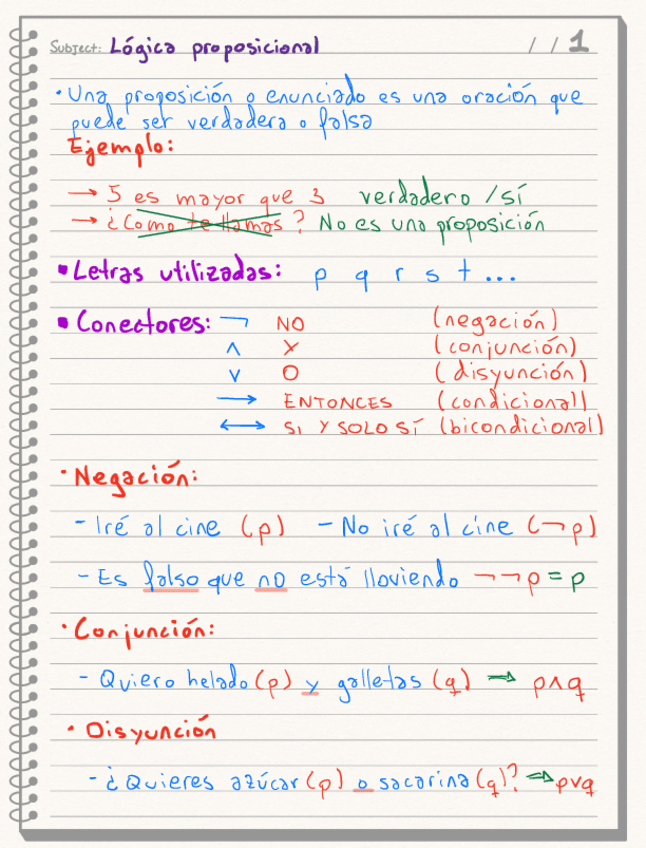 Subject: Lógica proposicional / / 1
• Una proposición o enunciado es una oración que
puede ser verdadera o falsa
Ejemplo:
→ 5 es mayor que 3 verdadero / sí
→ ¿Como te llamas? No es una proposición
▪ Letras utilizadas: p q r s t ...
▪ Conectores: ¬ NO (negación)
∧ Y (conjunción)
∨ O (disyunción)
→ ENTONCES (condicional)
↔ SI Y SOLO SÍ (bicondicional)
• Negación:
- Iré al cine (p) - No iré al cine (¬p)
- Es falso que no está lloviendo ¬¬p = p
• Conjunción:
- Quiero helado (p) y galletas (q) ⇒ p∧q
• Disyunción
- ¿Quieres azúcar (p) o sacarina (q)? ⇒ p∨q